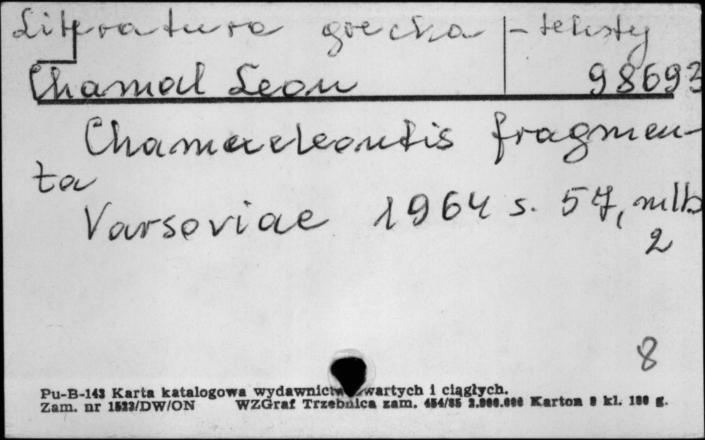 Literatura grecka - teksty
Chamal Leon 98693
Chamaeleontis fragmen-
ta
Varsoviae 1964 s. 57, nlb
2
8
Pu-B-143 Karta katalogowa wydawnictw zwartych i ciągłych.
Zam. nr 1523/DW/ON WZGraf Trzebnica zam. 454/85 2.000.000 Karton 8 kl. 180 g.